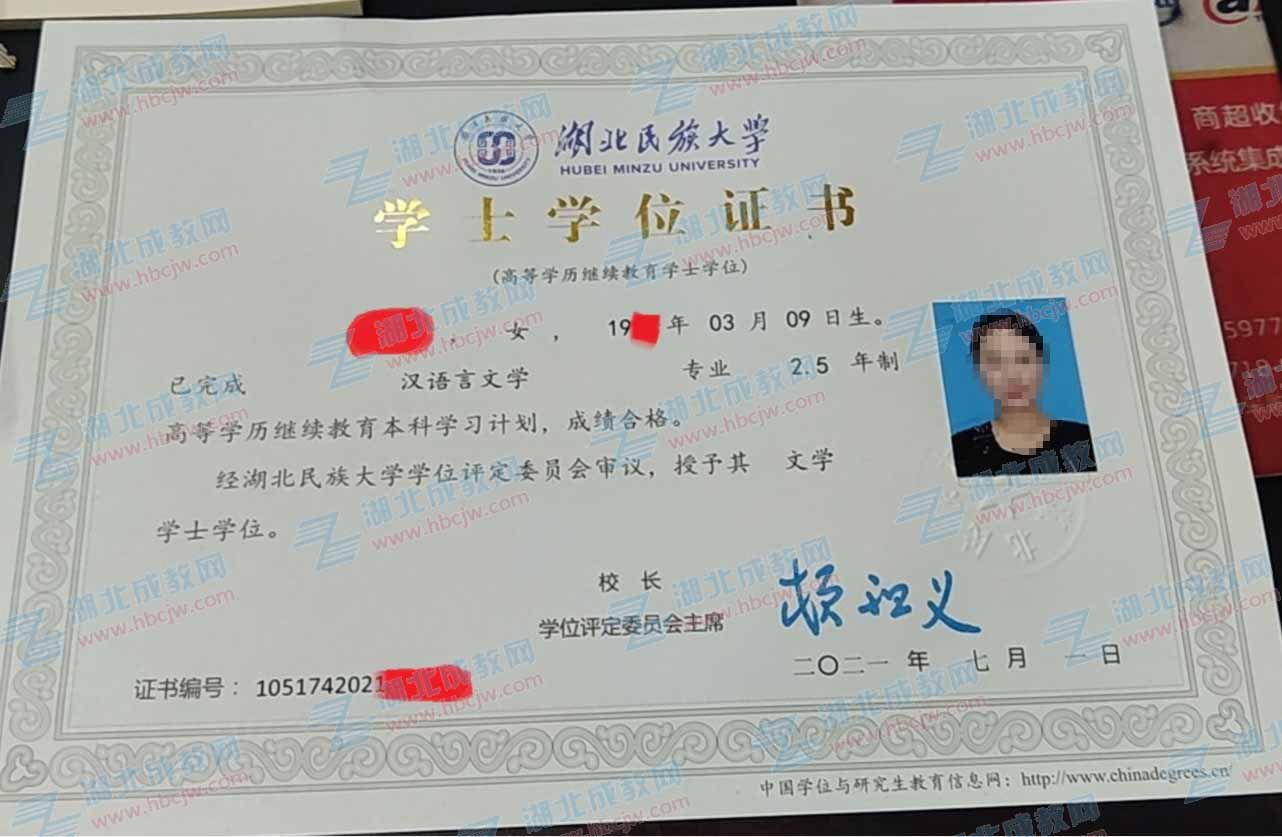 湖北民族大学
HUBEI MINZU UNIVERSITY
学士学位证书
(高等学历继续教育学士学位)
, 女, 19 年 03 月 09 日生。
已完成 汉语言文学 专业 2.5 年制
高等学历继续教育本科学习计划，成绩合格。
经湖北民族大学学位评定委员会审议，授予其 文学
学士学位。
校 长
学位评定委员会主席
二〇二一 年 七 月 一 日
证书编号：1051742021
中国学位与研究生教育信息网：http://www.chinadegrees.cn/
湖北成教网
www.hbcjw.com
商超收
系统集成
5977